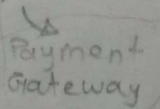 Payment
Gateway